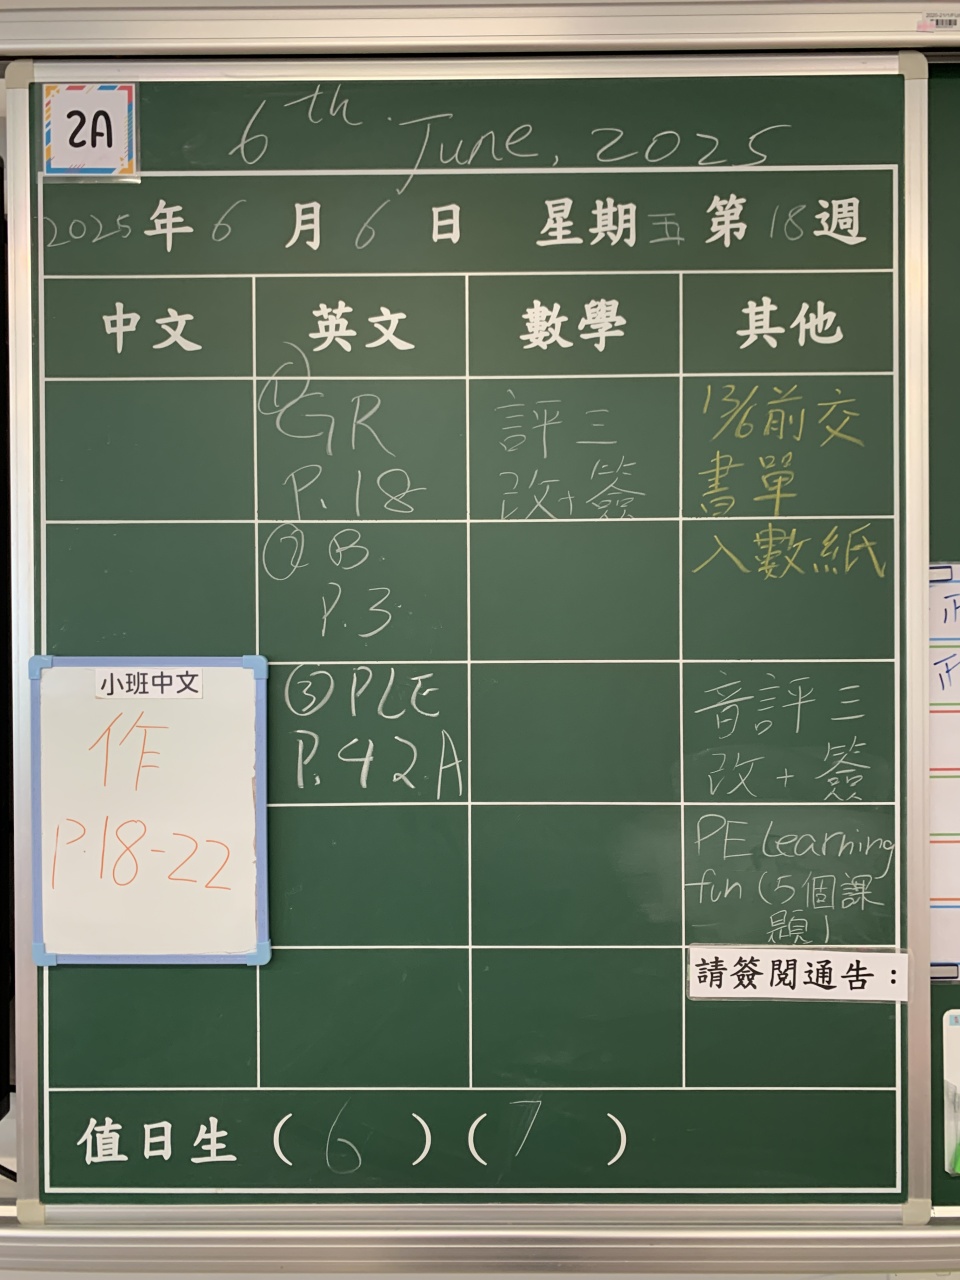 2A
6th June, 2025
2025年6月6日 星期五 第18週
中文 英文 數學 其他
① GR
P.18
評三
改+簽
13/6前交
書單
② B
P.3
入數紙
小班中文
作
P.18-22
③ PLE
P.42A
音評三
改+簽
PE Learning
fun (5個課
題)
請簽閱通告：
值日生 (6) (7)